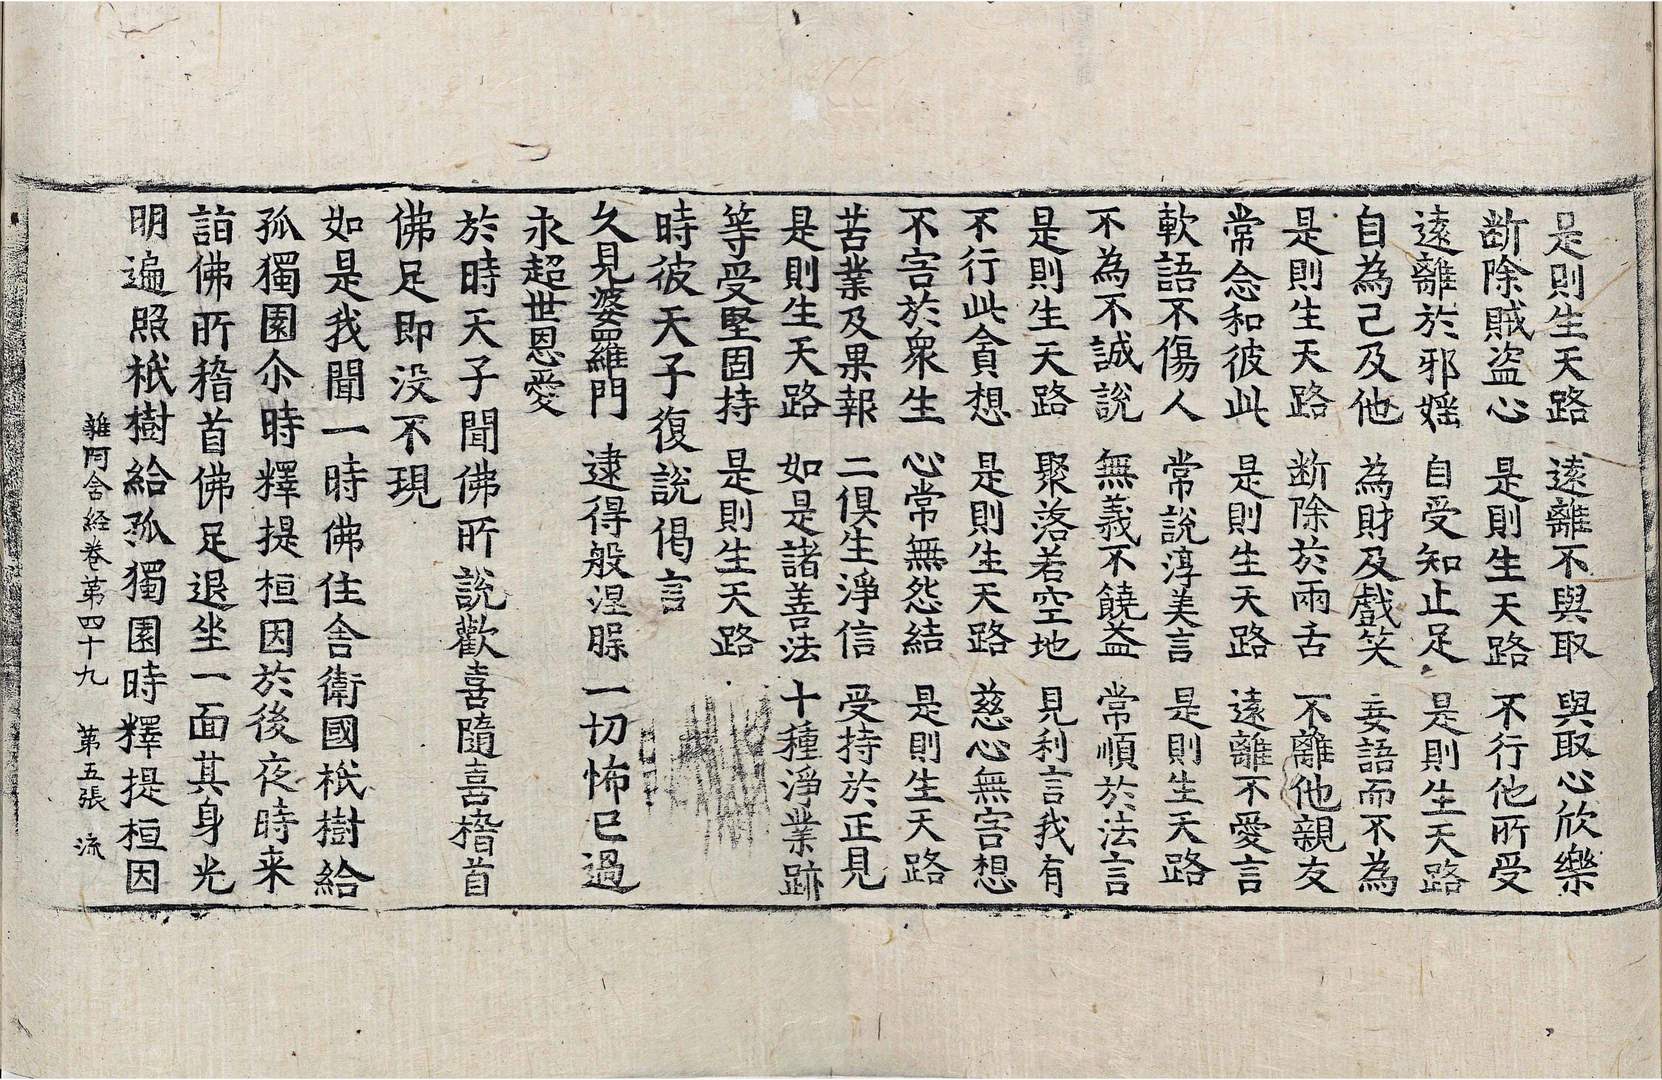 是則生天路　遠離不與取　與取心欣樂
断除賊盗心　是則生天路　不行他所受
遠離於邪婬　自受知止足　是則生天路
自為己及他　為財及戲笑　妄語而不為
是則生天路　断除於兩舌　不離他親友
常念和彼此　是則生天路　遠離不愛言
軟語不傷人　常說淳美言　是則生天路
不為不誠說　無義不饒益　常順於法言
是則生天路　聚落若空地　見利言我有
不行此貪想　是則生天路　慈心無害想
不害於衆生　心常無怨結　是則生天路
苦業及果報　二俱生淨信　受持於正見
是則生天路　如是諸善法　十種淨業跡
等受堅固持　是則生天路
時彼天子復說偈言
久見婆羅門　逮得般涅槃　一切怖已過
永超世恩愛
於時天子聞佛所說歡喜隨喜稽首
佛足即没不現
如是我聞一時佛住舍衛國祇樹給
孤獨園尒時釋提桓因於後夜時来
詣佛所稽首佛足退坐一面其身光
明遍照祇樹給孤獨園時釋提桓因
雜阿含経卷第四十九　第五張　流